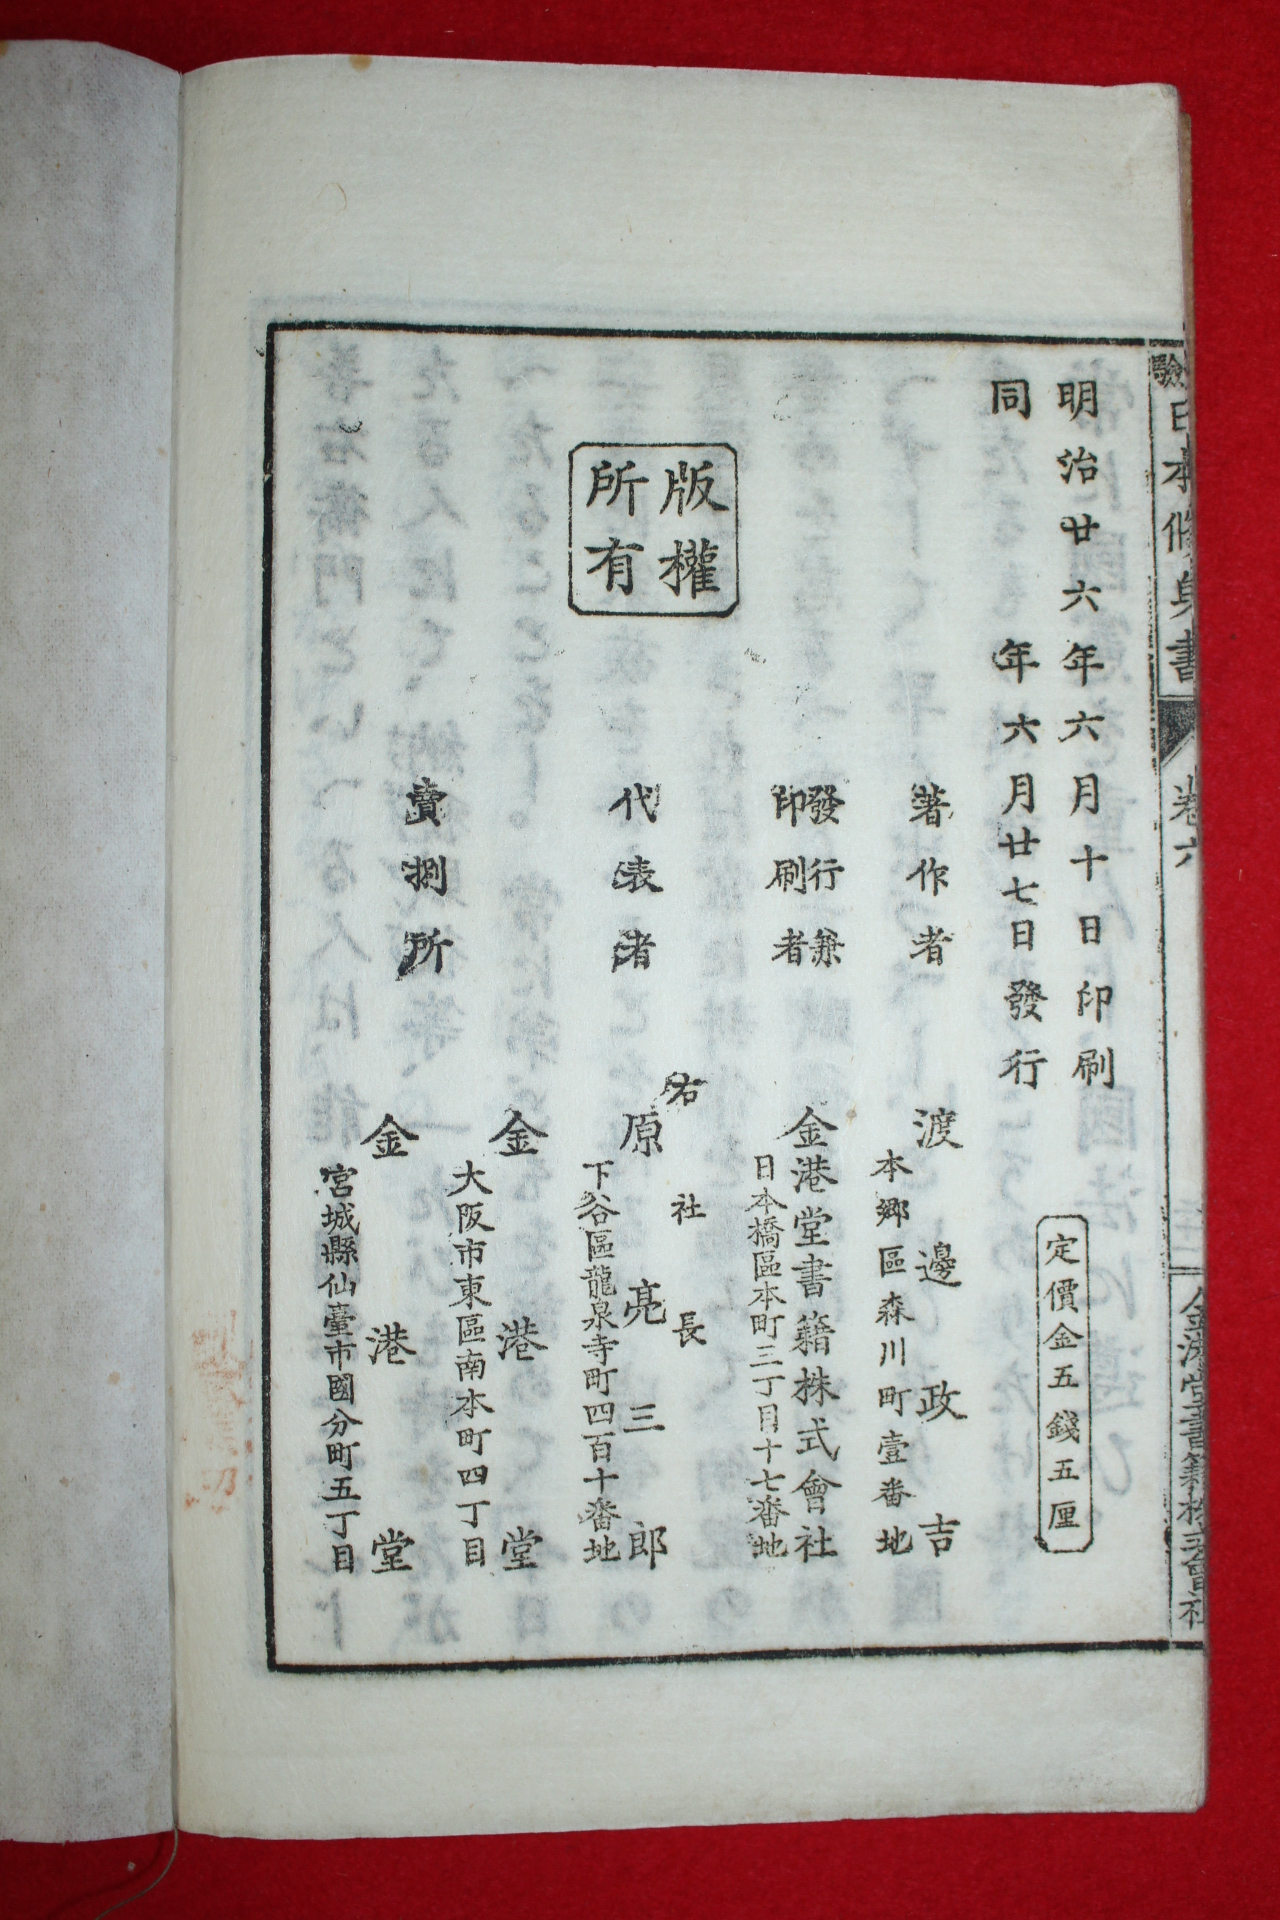 驗日本修身書
卷六
金港堂書籍株式會社
明治廿六年六月十日印刷
同年六月廿七日發行
定價金五錢五厘
著作者
渡邊政吉
本郷區森川町壹番地
發行兼
印刷者
金港堂書籍株式會社
日本橋區本町三丁目十七番地
版權
所有
右社長
代表者
原亮三郎
下谷區龍泉寺町四百十番地
賣捌所
金港堂
大阪市東區南本町四丁目
金港堂
宮城縣仙臺市國分町五丁目